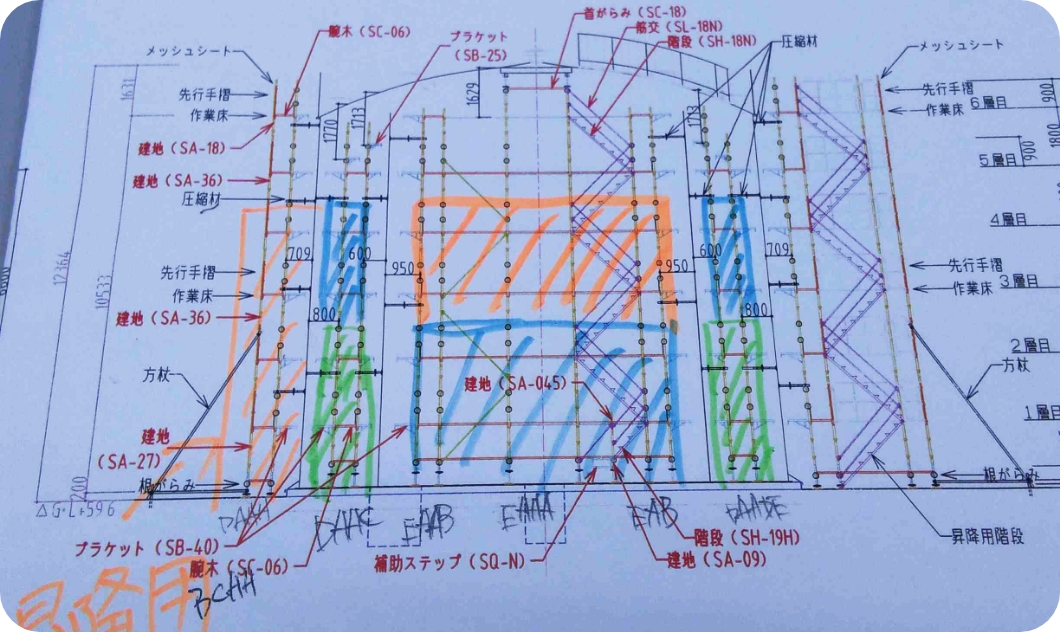 首がらみ（SC-18）
腕木（SC-06）
筋交（SL-18N）
ブラケット
（SB-25）
階段（SH-18N）
圧縮材
メッシュシート
メッシュシート
1631
1629
先行手摺
作業床
1770
1713
1713
先行手摺
作業床
6層目
900
1800
建地（SA-18）
5層目
900
建地（SA-36）
圧縮材
4層目
12364
10533
709
600
950
950
600
709
先行手摺
作業床
先行手摺
作業床
3層目
建地（SA-36）
800
800
2層目
方杖
建地（SA-045）
方杖
1層目
建地
（SA-27）
200
根がらみ
根がらみ
△G.L+596
EAAA
EAB
ブラケット（SB-40）
腕木（SC-06）
補助ステップ（SQ-N）
階段（SH-19H）
建地（SA-09）
昇降用階段
昇降用